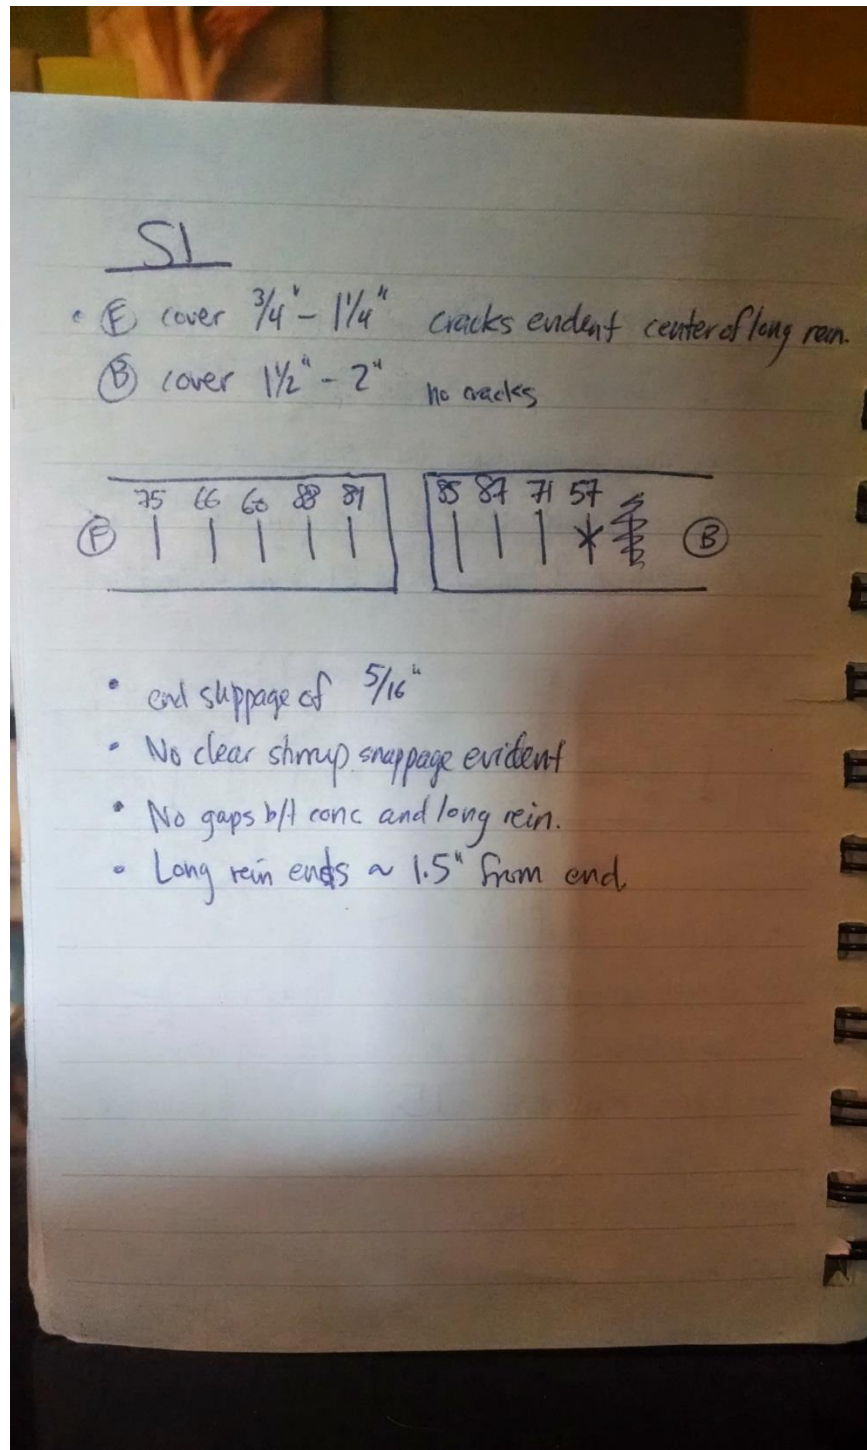 S1
• Ⓕ cover 3/4" - 1 1/4" cracks evident center of long rein.
Ⓑ cover 1 1/2" - 2" no cracks
75 66 60 88 89 85 87 71 57
Ⓕ Ⓑ
• end slippage of 5/16"
• No clear stirrup snappage evident
• No gaps b/t conc and long rein.
• Long rein ends ~ 1.5" from end.